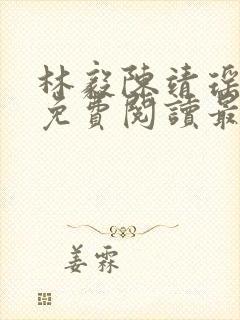 林毅陳靖瑶
免費閱讀最
姜霖